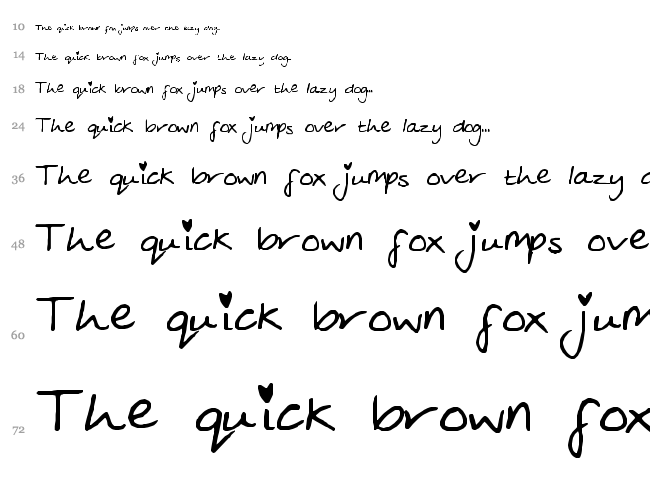 10 The quick brown fox jumps over the lazy dog..
14 The quick brown fox jumps over the lazy dog..
18 The quick brown fox jumps over the lazy dog..
24 The quick brown fox jumps over the lazy dog...
36 The quick brown fox jumps over the lazy d
48 The quick brown fox jumps ove
60 The quick brown fox jum
72 The quick brown fox